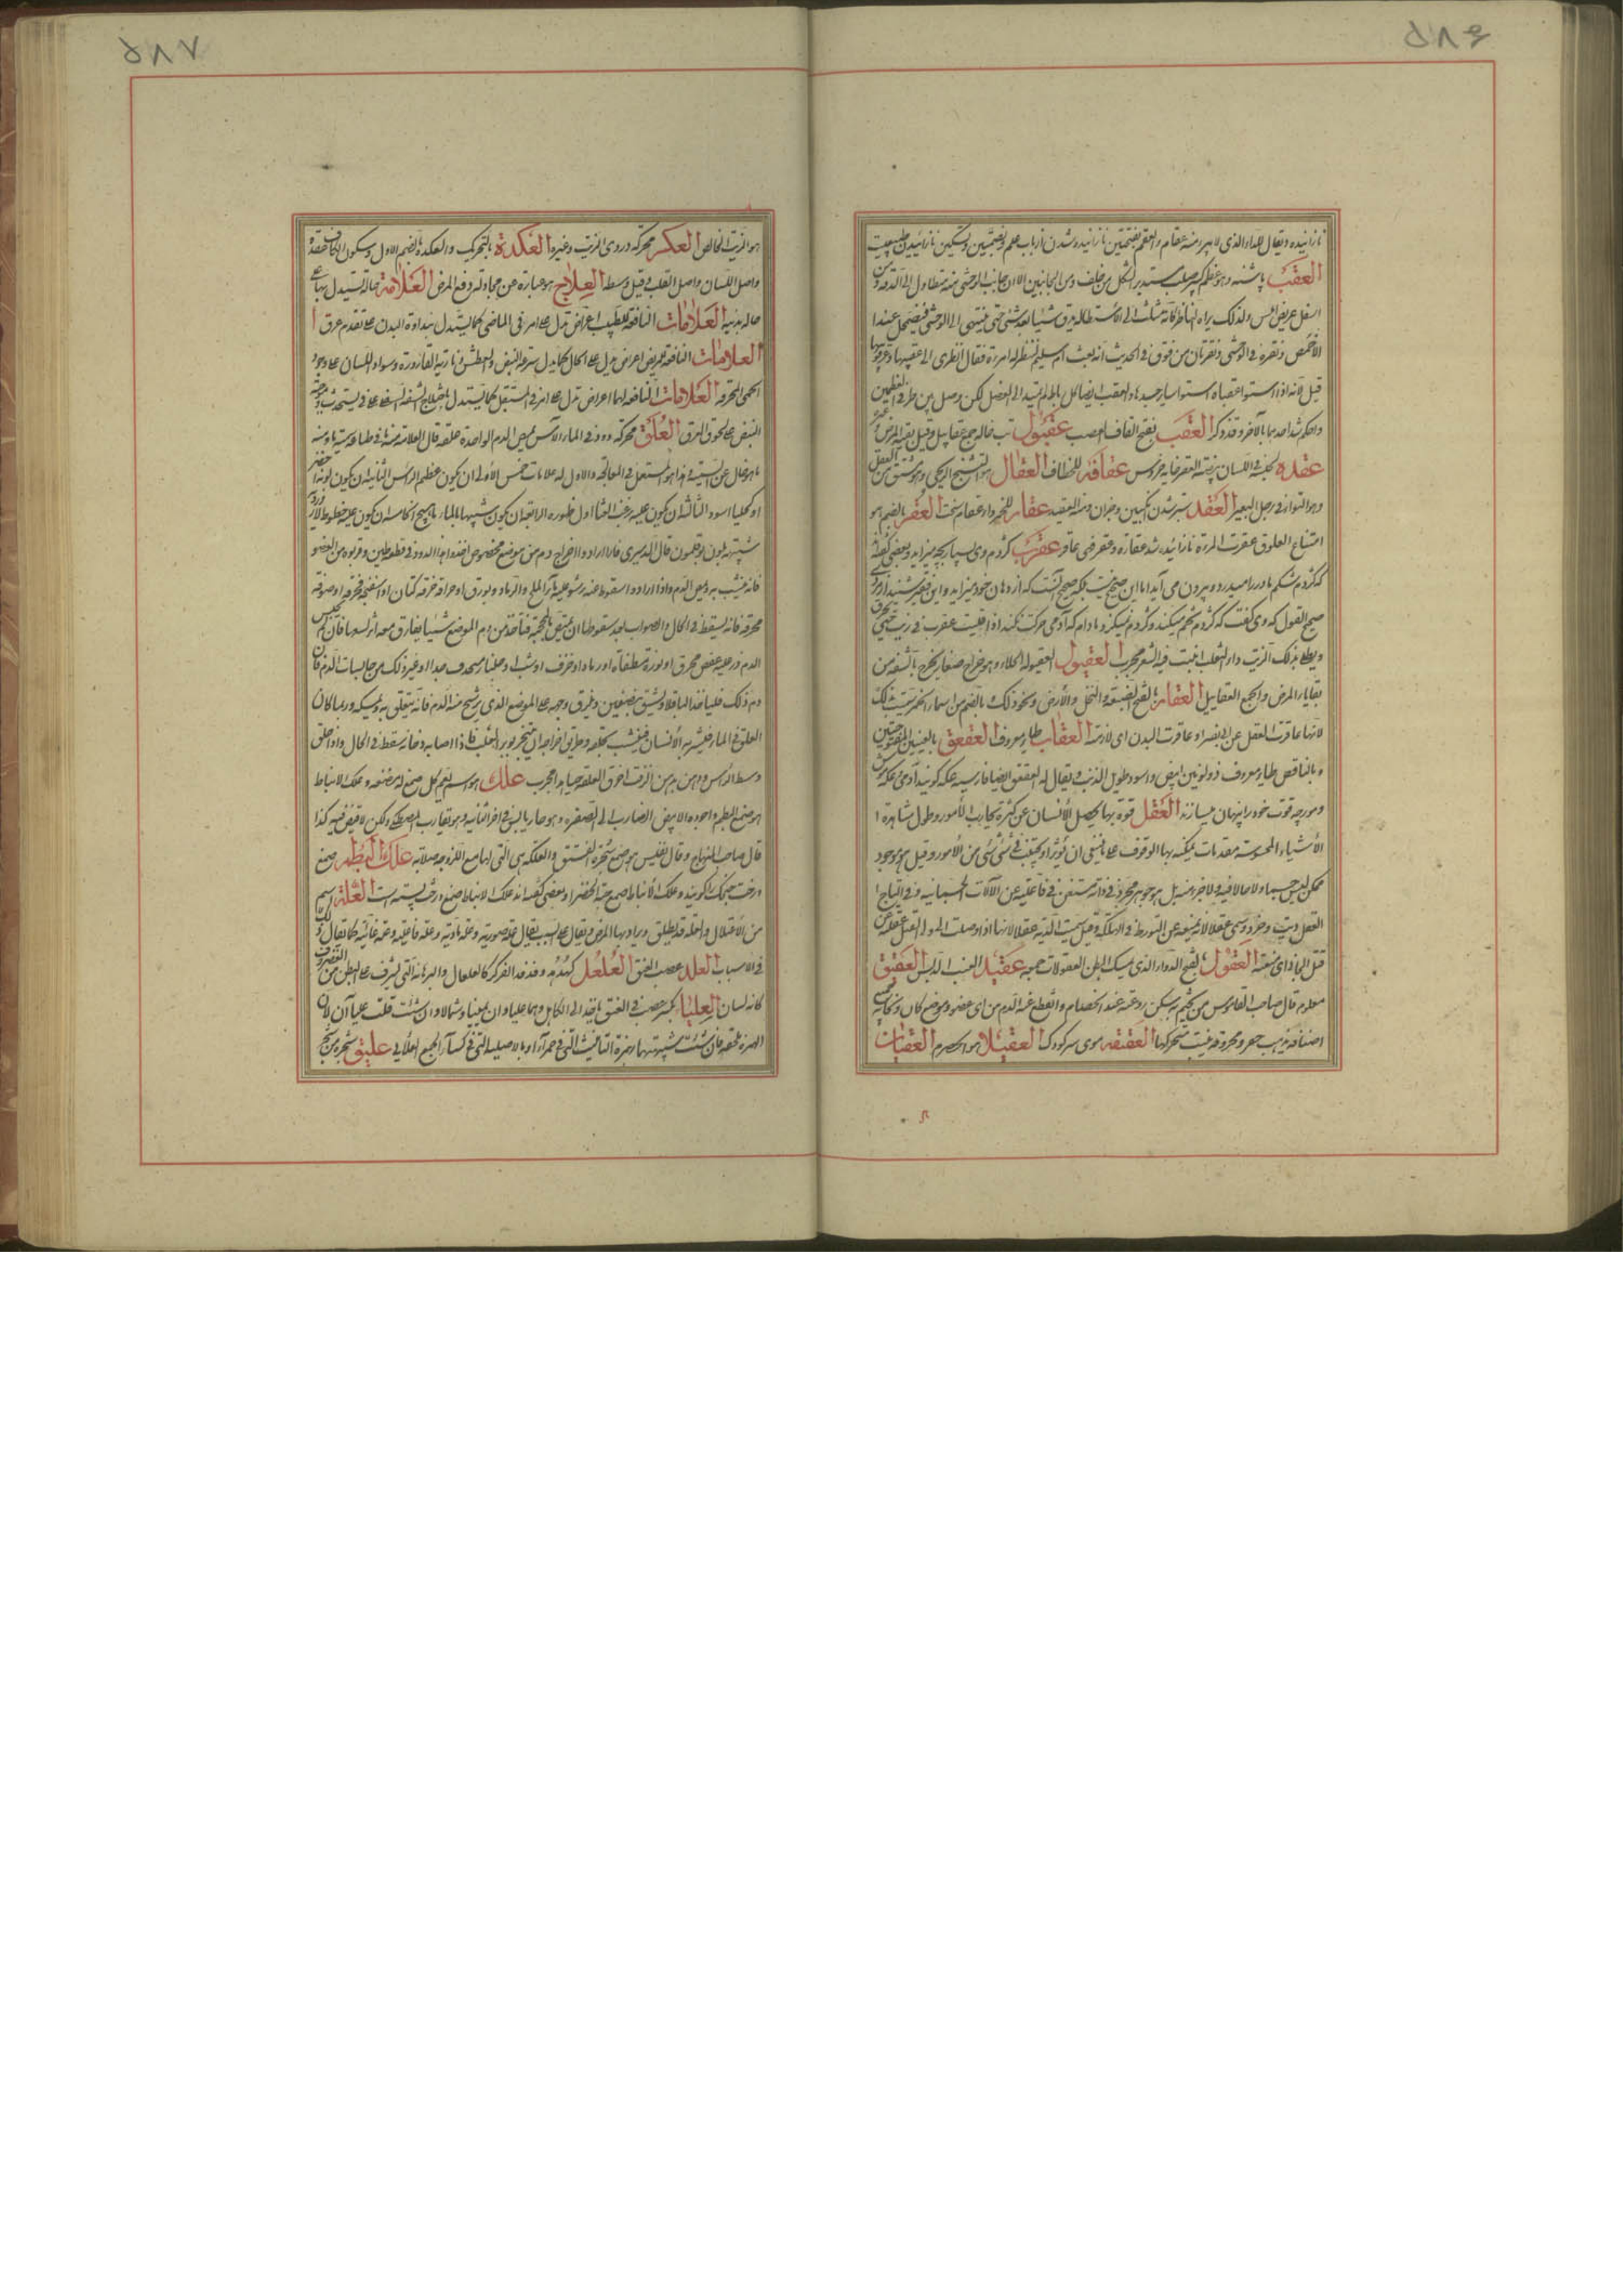 ۵۸۶
نازائیده و یقال للداء الذی لا یبرء منه عقام و العقم بفتحتین نازائیده شدن از باب علم و بضمتین و تسکین نازائیدن طبیعت
العقب پاشنه و هو عظم کبیر صلب مستدیر الشکل من خلف و من الجانبین الا ان جانب الوحشی منه متطاول الی القدم و من
اسفل عریض املس و لذلک یراه الناظر کانه مثلث الی الاستطالة یرق شیئا بعد شئی حتی ینتهی الی الوحشی فیضمحل عند
الاخمص و نقرة فی الوحشی و نقرتان من فوق و فی الحدیث انه بعث ام سلیم لتنظر له امرءة فقال انظری الی عقبیها و عرقوبیها
قیل لانه اذا استوا عقباه استوا سایر جسده و العقب ایضا کل
بالآخر و قد ذکر العقب بفتح القاف العصب عقبول تب خاله جمع عقابیل و قیل بقیة المرض
عقده لکنة فی اللسان عقافه للخطاف العقال هو التشنج الریحی و هو مشتق من العقل
و هو التواء فی رجل البعیر العقد سبتر شدن انگبین و جز آن و منه المعقد عقار للخمر و دار عقار سخت العقر بالضم هو
امتناع العلوق عقرت المرءة نازائیده شد عقارة و عقر فهی عاقر عقرب کژدم وی بسیار بچه میزاید و بعضی گفته
که کژدم شکم مادر را میدرد و بیرون می آید اما این صحیح نیست بلکه صحیح آنست که از دهان خود میزاید و این فقیر شنید از مردی
صحیح القول که وی گفت که کژدم تخم میکند و کژدم نیش نمیکند و مادام که آدمی حرکت نکند اذا قلیت عقرب فی زیت حتی یحترق
و یطلی بذلک الزیت داء الثعلب انبت فیه الشعر مجرب العقبول العقبولة الحلاء و هو خراج صغار یخرج بالشفة من
بقایا المرض و الجمع العقابیل العقار بالفتح الضیعة و النخل و الارض و نحو ذلک بالضم من اسماء الخمر سمیت بذلک
لانها عاقرت العقل عن ابی نصر او عاقرت البدن ای لازمته العقاب طایر معروف العقعق بالعینین المفتوحتین
و بالقافین طایر معروف ذو لونین ابیض و اسود طویل الذنب و یقال له القعقع ایضا فارسیه عکه گویند
و مورچه قوت خود را پنهان میسازند العقل قوة بها یحصل للانسان عن کثرة تجارب الامور و طول مشاهدة
الاشیاء المحسوسة مقدمات یمکنه بها الوقوف علی ما ینبغی ان یؤثر او یجتنب فی شئی شئی من الامور و قیل هو موجود
ممکن لیس جسما و لا حالا فیه و لا جزء منه بل هو جوهر مجرد فی ذاته مستغن فی فاعلیته عن الآلات الجسمانیه و فی التاج
العقل دیت و خرد و سمی عقلا لانه یمنعه عن التورط فی الهلکة و قیل سمیت الدیة عقلا لانها اذا وصلت الی ولی القتیل عقلته عن
قتل الجانی ای منعته العقول بالفتح الدواء الذی یمسک البطن المعقولات جمعه عقید العنب الدبس العقیق
معلوم قال صاحب القاموس من تختم به سکن روعته عند الخصام و انقطع عنه الدم من ای عضو و موضع کان و نحاتة جمیع
اصنافه یذهب حفر و محروقه یثبت متحرکها العقیقه موی سر کودک العقیلا هو الحصرم العقیان
۵۸۷
هو الزیت الخالص العکر محرکة دردی الزیت و غیره العکدة بالتحریک و العکدة بالضم الاول و سکون الکاف عقدة
و اصل اللسان و اصل القلب و قیل وسطه العلاج هو عبارة عن محاولة دفع المرض العلامة حالة یستدل بها علی
حالة بدنیه العلامات النافعة للطبیب اعراض تدل علی امر فی الماضی کما یستدل بنداوة البدن علی تقدم عرق
العلامات النافعة للمریض اعراض تدل علی الحال کما یدل سرعة النبض و العطش و ناریة القارورة و سواد اللسان علی وجود
الحمی المحرقة العلامات النافعة لهما اعراض تدل علی امر فی المستقبل کما یستدل باختلاج الشفة السفلی علی قی یستحدث و موجیة
النبض علی لحوق العرق العلق محرکة دود فی الماء الآسن یمص الدم الواحدة علقة قال العلامة منه فی طباعه سمیة ما و منه
ما هو خال عن السمیة و هذا هو المستعمل فی المعالجة و الاول له علامات خمس الاولی ان یکون عظیم الراس الثانیة ان یکون لونه اخضر
او کحلیا او اسود الثالثة ان یکون علیه زغب الرابعة ان یکون شبیها بالمارماهیج الخامسة ان یکون علیه خطوط لازوردی
شبیهة بلون بوقلمون قال الدمیری فاذا ارادوا اخراج دم من موضع مخصوص اخذوا هذا الدود فی قطعة طین و قربوه من العضو
فانه ینشب به و یمص الدم و اذا ارادوا سقوطه عنه رشوا علیه ماء الملح و الرماد و بورق او حراقة خرقة کتان او اسفنجة محرقة او صوفة
محرقة فانه یسقط فی الحال و الصواب بعد سقوطها ان یمص بالمحجمة فتأخذ من دم الموضع شیئا یفارق معه اثر لسعها فان لم یحتبس
الدم ذر علیه عفص محرق او نورة مطفاة او رماد او خزف غیر ذلک من حابسات الدم فان
دم ذلک فلیأخذ الباقلا و یشق بنصفین و یلزق وجهه علی الموضع الذی یرشح منه الدم فانه یتعلق به و یمسکه و ربما کان
العلق فی الماء فیشربه الانسان فینشب بحلقه و طریق اخراجه ان یتبخر بوبر الثعلب فاذا اصابه دخانه سقط فی الحال و اذا حلق
وسط الراس و دهن بدهن الزفت اخرج العلقة حیا و المجرب علک هو اسم یعم کل صمغ له مضغة و علک الانباط
هو صمغ البطم و اجوده الابیض الضارب الی الصفرة و هو حار یابس فی آخر الثانیة و هو یقارب المصطکی و لکن لا قبض فیه کذا
قال صاحب المنهاج و قال نفیس هو صمغ شجرة الفستق و العلکة هی التی لها مع اللزوجة صلابة علک البطم صمغ
درخت بنک را گویند و علک الانباط صمغ حبة الخضرا و بعضی گفته اند علک الانباط صمغ درخت پسته است العلة اسم
من الاعتلال و العلة قد یطلق و یراد بها المرض و یقال علی السبب یقال علة صوریة و علة مادیة و علة فاعلیة و علة غائیة کما یقال ذلک
فی الاسباب العلد عصب العنق العلعل کهدهد و فدفد الذکر کالعلعال و الرهابة التی تشرف علی البطن من الغضروف
کانه لسان العلباء بکسر عصب فی العنق یأخذ الی الکاهل و هما علباوان یمینا و شمالا و ان شئت قلت علباءان لان
الهمزة ملحقة فان شئت شبهتها بهمزة التانیث التی فی حمراء او بالاصلیة التی فی کساء الجمع العلابی علیق شجر من شجر